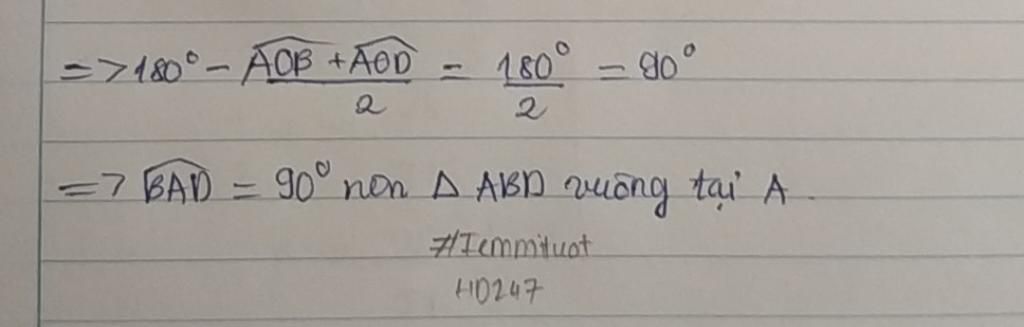 => 180° - \frac{\widehat{AOB} + \widehat{AOD}}{2} = \frac{180°}{2} = 90°
=> \widehat{BAD} = 90° nên Δ ABD vuông tại A.
#Iemmituot
HD247